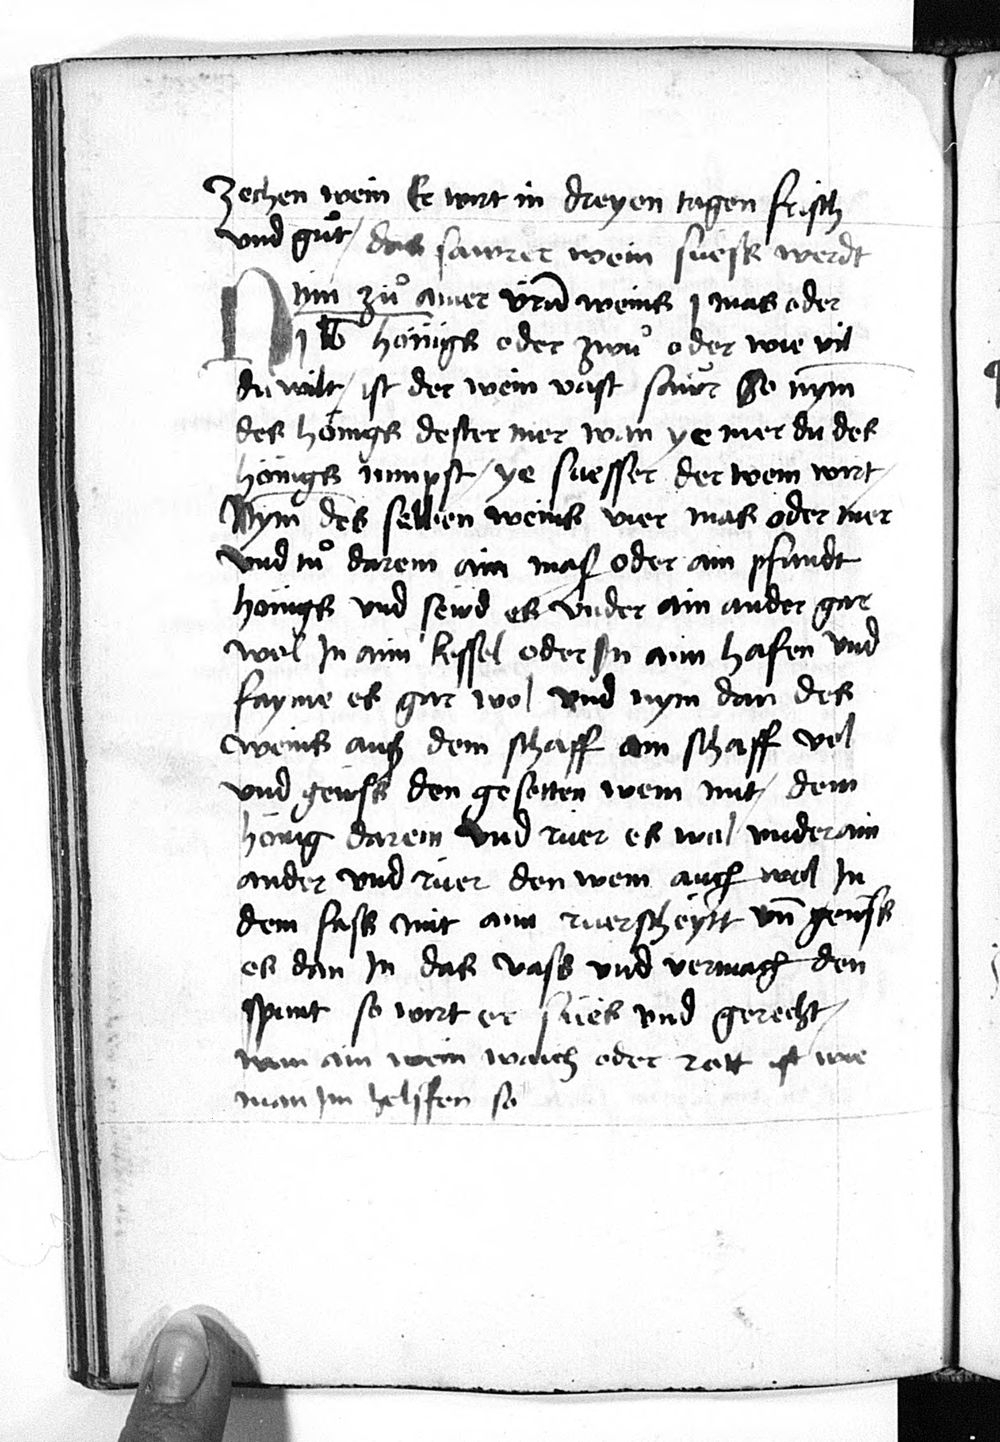 zechen wein Er wirt in dreyen tagen frisch
vnd gůt / das sawrer wein suess werdt
Nym zů ainer vrnn weins j mas oder
j lb hönigs oder zwů oder wie vil
du wilt / ist der wein vast saur So nym
des hönigs dester mer wan ye mer du des
hönigs nimpst / ye suesser der wein wirt /
Nym des selben weins vier mas oder mer
vnd tů darein ain mass oder ain pfundt
hönigs vnd seud es vnder ain ander gar
wol In aim kessel oder In aim hafen vnd
fayme es gar wol vnd nym dan des
weins aus dem schaff ain schaff vol
vnd geuss den gesotten wein mit / dem
hönig darein vnd ruer es wol vnderain
ander vnd rüer den wein auch wol In
dem fass mit aim ruerscheytt vn̄ geuss
es dan In das vass vnd vermach den
spunt so wirt er sües vnd gerecht /
wan ain wein waich oder rott ist wie
man Im helffen so